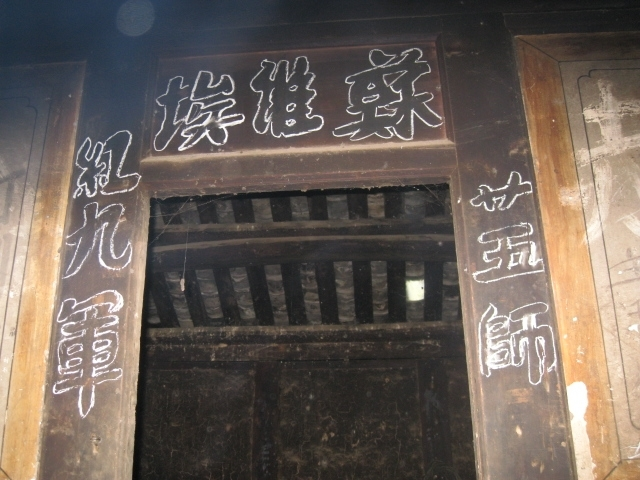 蘇維埃
紅九軍
廿五師